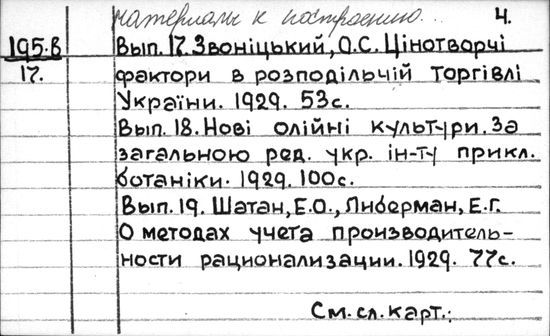 материалы к построению... 4.
195.В Вып. 17. Звоніцький, О.С. Цінотворчі
17. фактори в розподільчій торгівлі
України. 1929. 53с.
Вып. 18. Нові олійні культури. За
загальною ред. укр. ін-ту прикл.
ботаніки. 1929. 100с.
Вып. 19. Шатан, Е.О., Либерман, Е.Г.
О методах учета производитель-
ности рационализации. 1929. 77с.
См. сл. карт.: